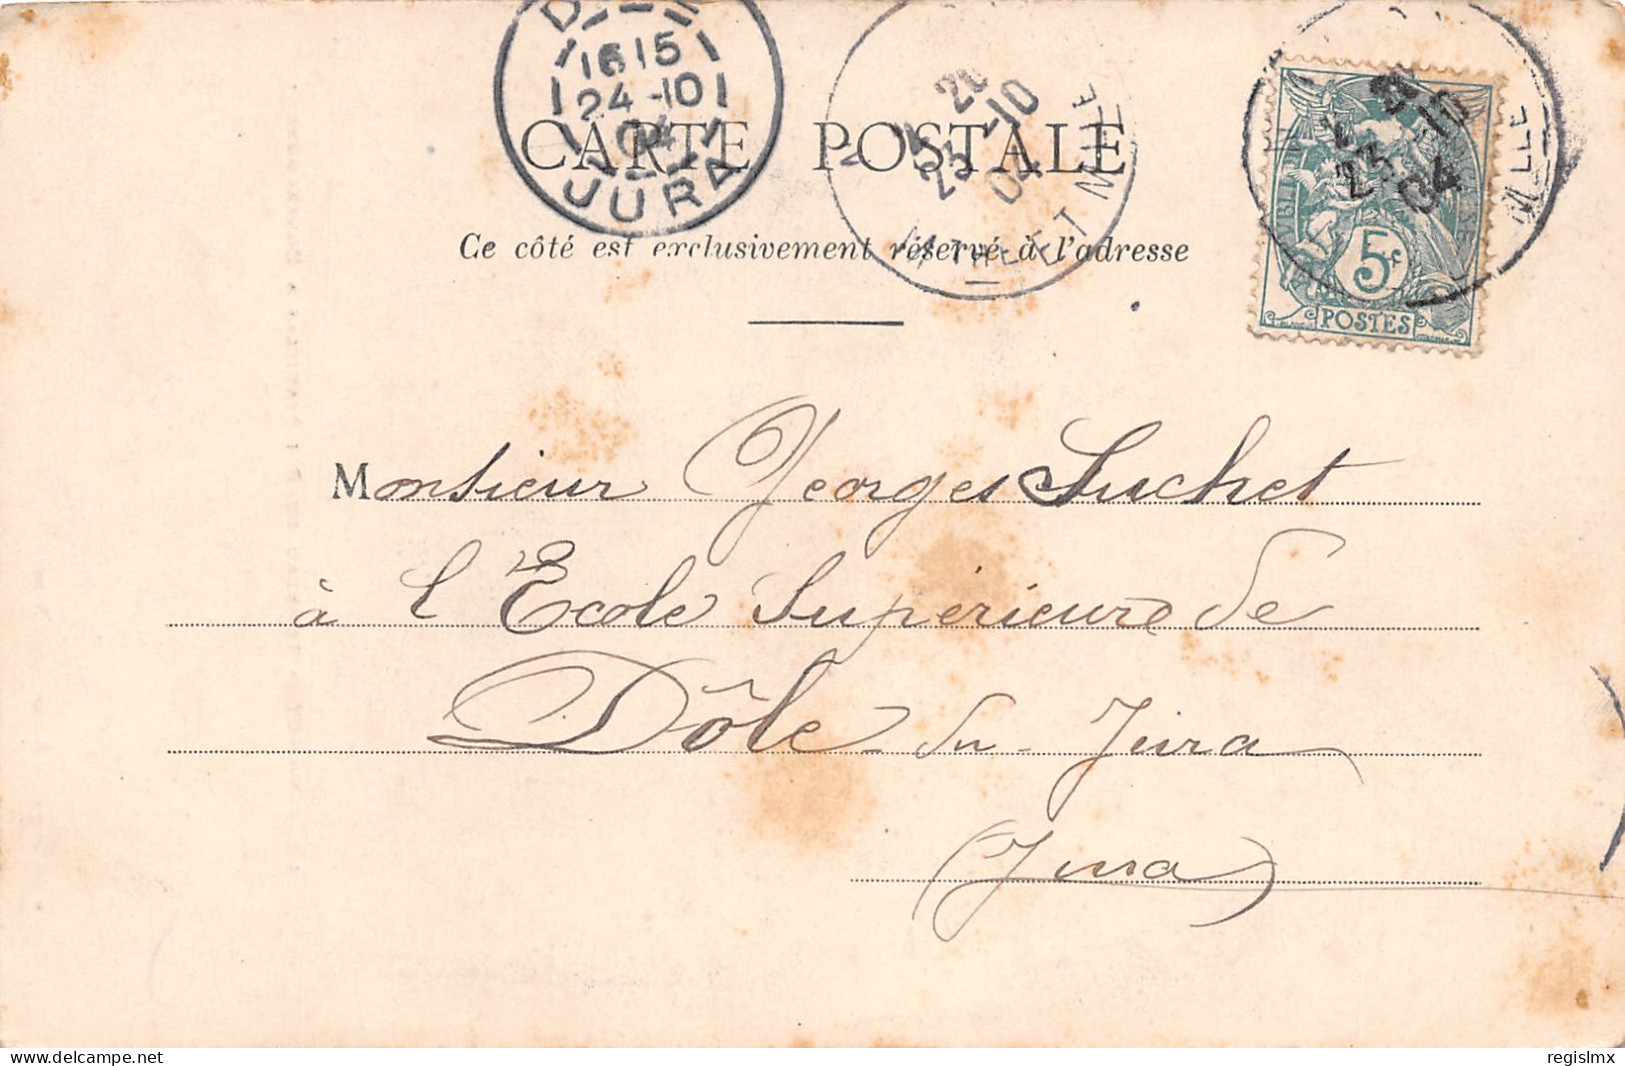 16 15
24 -10
04
JURA
23 -10
04
ET MLLE
23 -10
04
5c
POSTES
CARTE POSTALE
Ce côté est exclusivement réservé à l'adresse
Monsieur Georges Suchet
à l'Ecole Supérieure de
Dôle-du-Jura
(Jura)
delcampe.net
regislmx